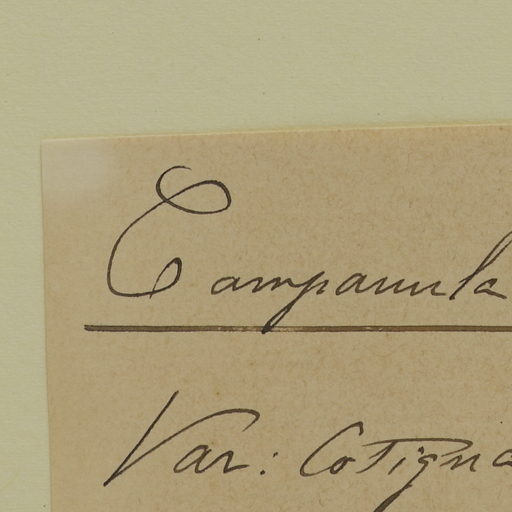 Campanula
Var: Cotigna